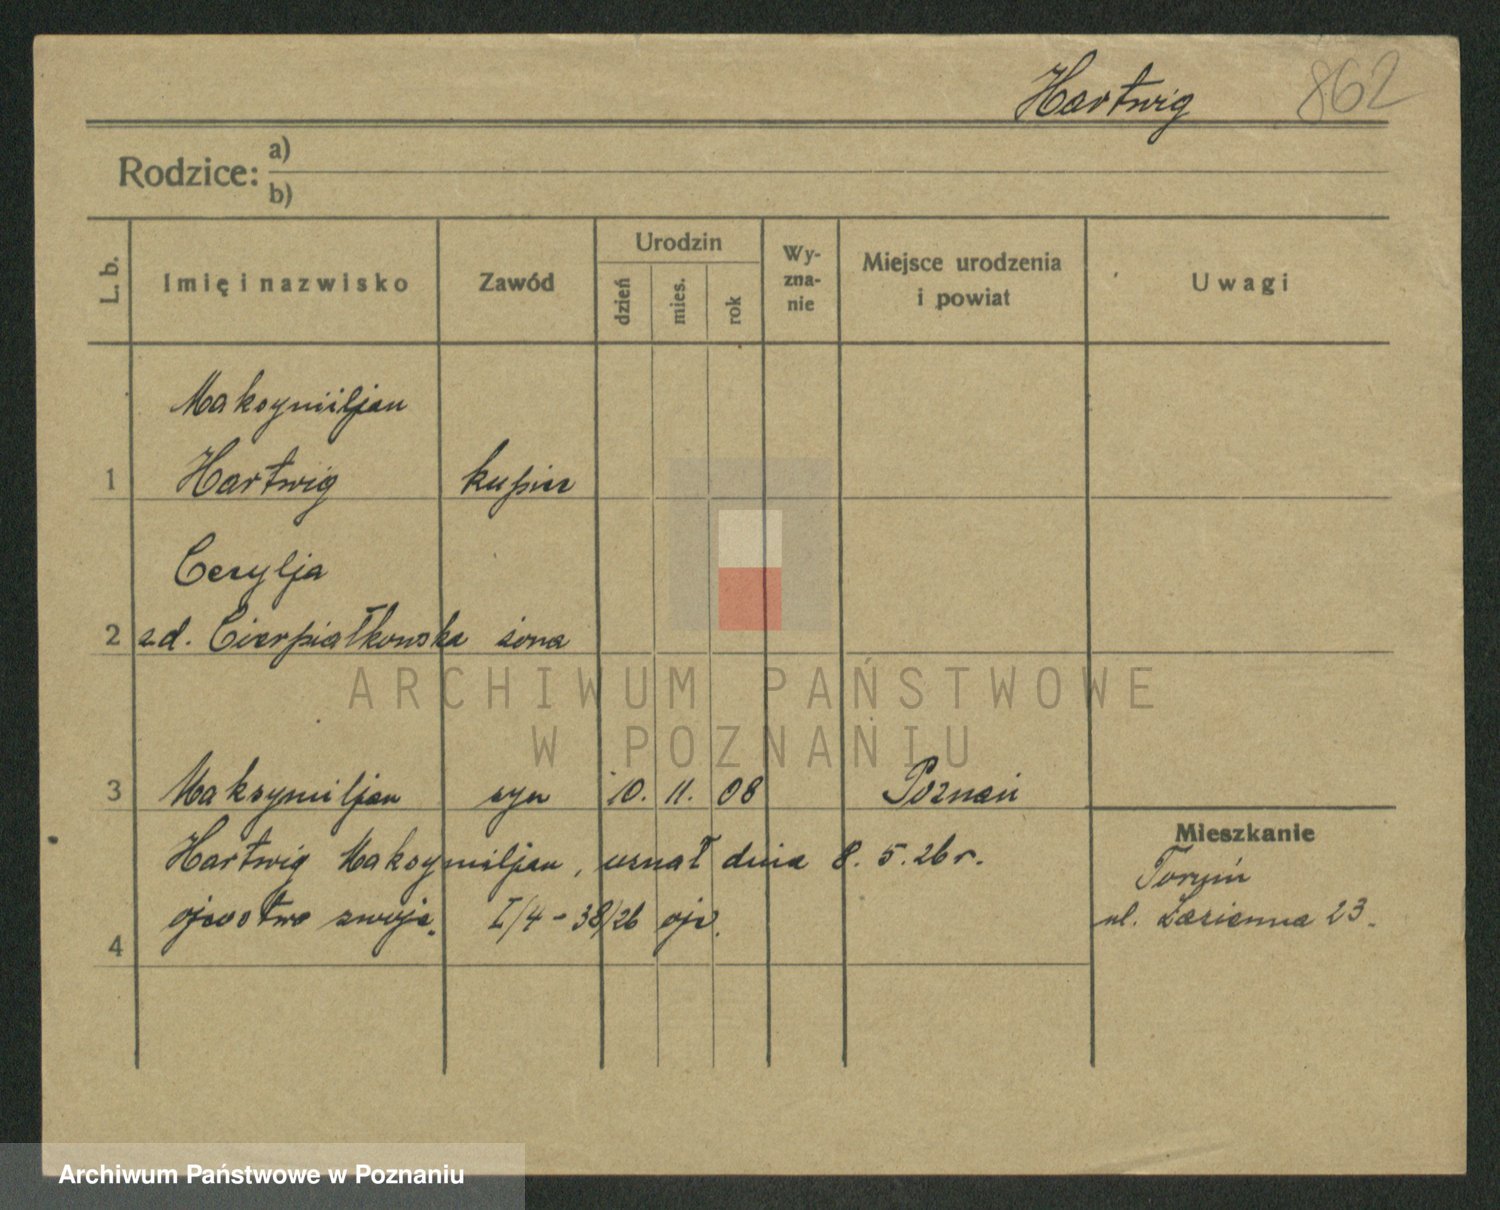 Hartwig 862
Rodzice: a)
b)
L. b. Imię i nazwisko Zawód Urodzin dzień mies. rok Wy-zna-nie Miejsce urodzenia i powiat Uwagi
Maksymiljan
1 Hartwig kupiec
Cecylja
2 zd. Cierpiałkowska żona
3 Maksymiljan syn 10. 11. 08 Poznań
Mieszkanie
Hartwig Maksymiljan, uznał dnia 8. 5. 26 r.
Toruń
ojcostwo swoje. I/4 - 38/26 ojc.
ul. Łazienna 23.
4
ARCHIWUM PAŃSTWOWE
W POZNANIU
Archiwum Państwowe w Poznaniu